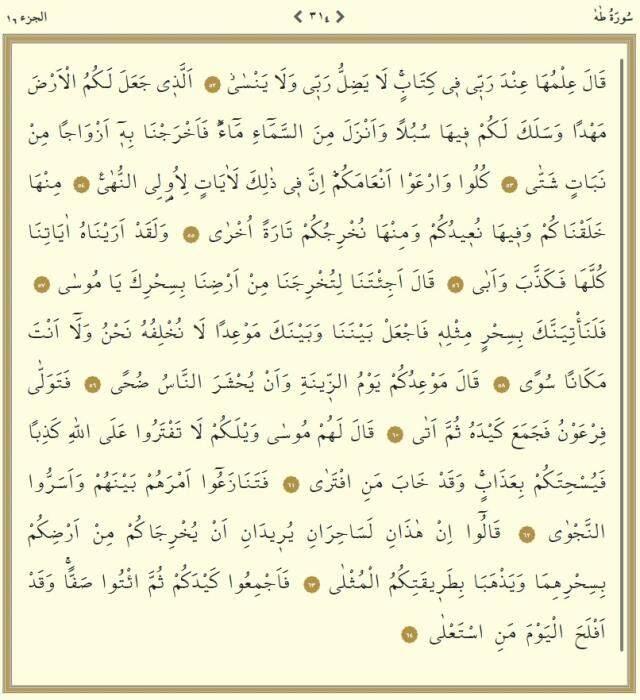 سُورَةُ طٰهٰ
❮ ٣١٤ ❯
الجزء ١٦
قَالَ عِلْمُهَا عِنْدَ رَبّٖى فٖى كِتَابٍۚ لَا يَضِلُّ رَبّٖى وَلَا يَنْسٰىۘ ٥٢ اَلَّذٖى جَعَلَ لَكُمُ الْاَرْضَ
مَهْدًا وَسَلَكَ لَكُمْ فٖيهَا سُبُلًا وَاَنْزَلَ مِنَ السَّمَٓاءِ مَٓاءًؕ فَاَخْرَجْنَا بِهٖٓ اَزْوَاجًا مِنْ
نَبَاتٍ شَتّٰى ٥٣ كُلُوا وَارْعَوْا اَنْعَامَكُمْؕ اِنَّ فٖى ذٰلِكَ لَاٰيَاتٍ لِاُولِى النُّهٰىࣖ ٥٤ مِنْهَا
خَلَقْنَاكُمْ وَفٖيهَا نُعٖيدُكُمْ وَمِنْهَا نُخْرِجُكُمْ تَارَةً اُخْرٰى ٥٥ وَلَقَدْ اَرَيْنَاهُ اٰيَاتِنَا
كُلَّهَا فَكَذَّبَ وَاَبٰى ٥٦ قَالَ اَجِئْتَنَا لِتُخْرِجَنَا مِنْ اَرْضِنَا بِسِحْرِكَ يَا مُوسٰى ٥٧
فَلَنَأْتِيَنَّكَ بِسِحْرٍ مِثْلِهٖ فَاجْعَلْ بَيْنَنَا وَبَيْنَكَ مَوْعِدًا لَا نُخْلِفُهُ نَحْنُ وَلَٓا اَنْتَ
مَكَانًا سُوًى ٥٨ قَالَ مَوْعِدُكُمْ يَوْمُ الزّٖينَةِ وَاَنْ يُحْشَرَ النَّاسُ ضُحًى ٥٩ فَتَوَلّٰى
فِرْعَوْنُ فَجَمَعَ كَيْدَهُ ثُمَّ اَتٰى ٦٠ قَالَ لَهُمْ مُوسٰى وَيْلَكُمْ لَا تَفْتَرُوا عَلَى اللّٰهِ كَذِبًا
فَيُسْحِتَكُمْ بِعَذَابٍۚ وَقَدْ خَابَ مَنِ افْتَرٰى ٦١ فَتَنَازَعُٓوا اَمْرَهُمْ بَيْنَهُمْ وَاَسَرُّوا
النَّجْوٰى ٦٢ قَالُٓوا اِنْ هٰذَانِ لَسَاحِرَانِ يُرٖيدَانِ اَنْ يُخْرِجَاكُمْ مِنْ اَرْضِكُمْ
بِسِحْرِهِمَا وَيَذْهَبَا بِطَرٖيقَتِكُمُ الْمُثْلٰى ٦٣ فَاَجْمِعُوا كَيْدَكُمْ ثُمَّ ائْتُوا صَفًّاۚ وَقَدْ
اَفْلَحَ الْيَوْمَ مَنِ اسْتَعْلٰى ٦٤